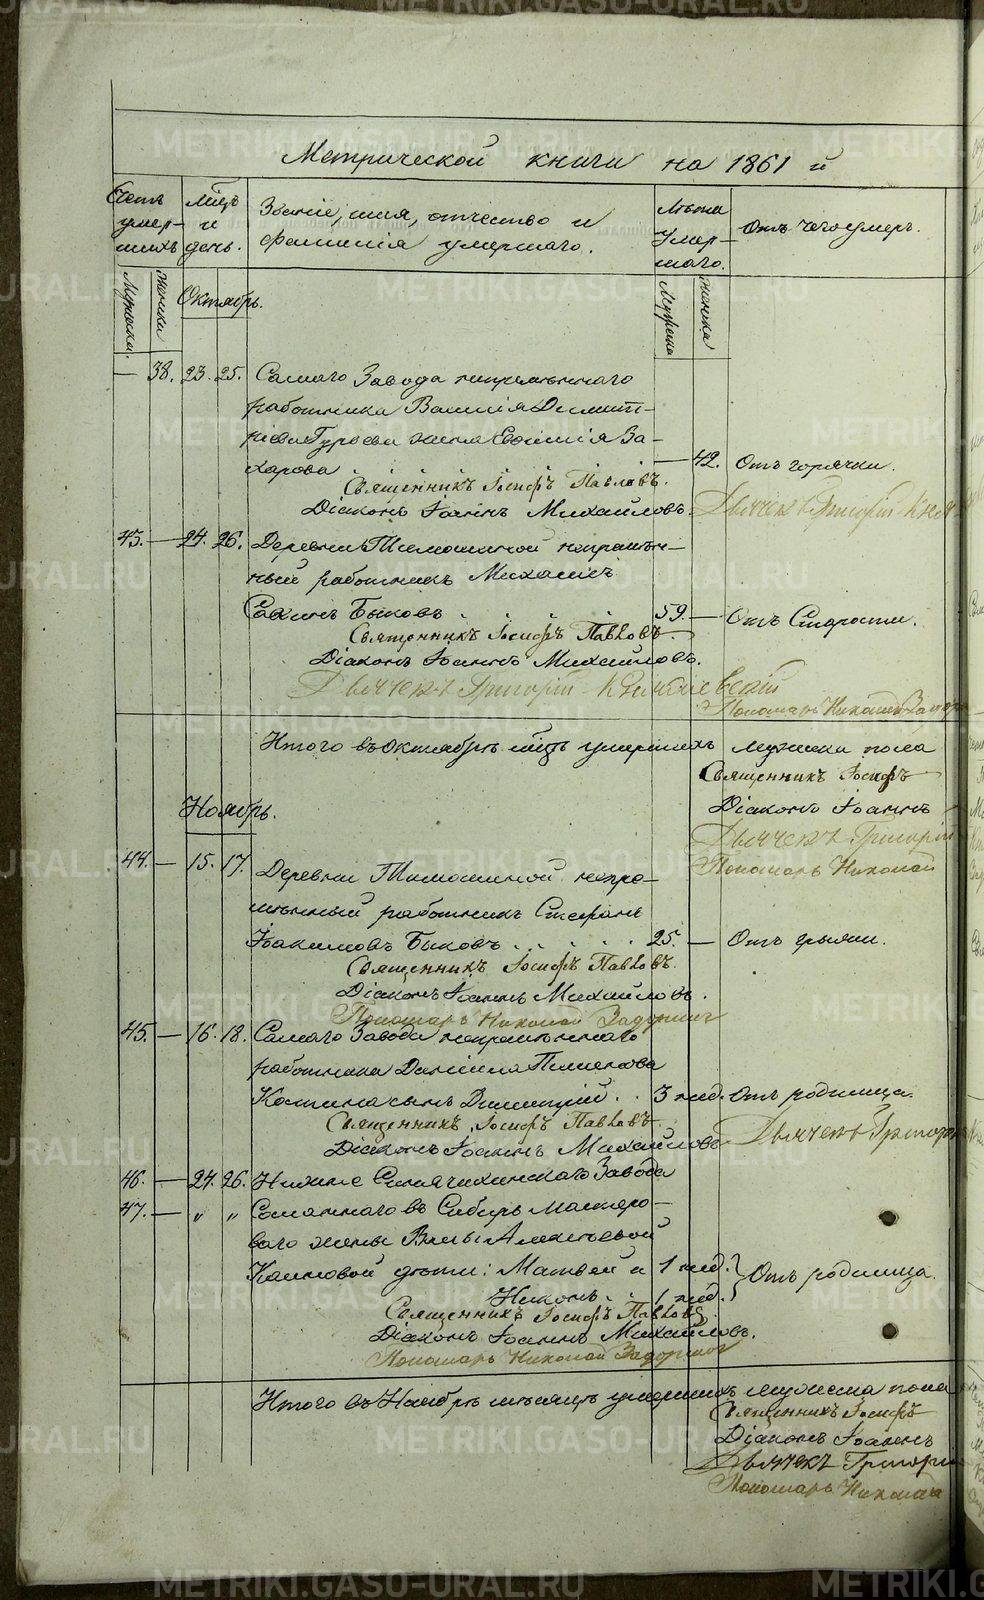 Метрической книги на 1861 й
Счетъ умершихъ.
Мѣсяцъ и день.
Званіе, имя, отчество и фамилія умершаго.
Лѣта умершаго.
Отъ чего умеръ.
Мужеска. Женска
Октябрь.
Мужеска Женска
— 38. 23. 25. Самаго Завода непремѣннаго
работника Василія Димит-
ріева Гурьева жена Евфимія За-
харова — 42. Отъ горячки.
Священникъ Іосифъ Павловъ.
Діаконъ Іоаннъ Михайловъ.
Дьячекъ Григорій
43. — 24. 26. Деревни Тимошиной непремѣн-
ный работникъ Михаилъ
Быковъ 59. — Отъ Старости.
Священникъ Іосифъ Павловъ.
Діаконъ Іоаннъ Михайловъ.
Дьячекъ Григорій
Пономарь Николай
Итого въ Октябрѣ мѣсяцѣ умершихъ мужеска пола
Священникъ Іосифъ
Діаконъ Іоаннъ
Дьячекъ Григорій
Пономарь Николай
Ноябрь.
44. — 15. 17. Деревни Тимошиной непре-
мѣнный работникъ Стефанъ
Іоакимовъ Быковъ 25. — Отъ грыжи.
Священникъ Іосифъ Павловъ.
Діаконъ Іоаннъ Михайловъ.
Пономарь Николай Задоринъ
45. — 16. 18. Самаго Завода непремѣннаго
работника Даніила Пименова
сынъ Димитрій 3 нед. Отъ родимца.
Священникъ Іосифъ Павловъ.
Діаконъ Іоаннъ Михайловъ
Дьячекъ Григорій
46. — 24. 26. Нижне Синячихинскаго Завода
47. — " " Сосланнаго въ Сибирь мастеро-
ваго жены Алексѣевой
дѣти: Матвей и 1 нед.
Никонъ 1 нед. Отъ родимца.
Священникъ Іосифъ Павловъ.
Діаконъ Іоаннъ Михайловъ.
Пономарь Николай Задоринъ
Итого въ Ноябрѣ мѣсяцѣ умершихъ мужеска пола
Священникъ Іосифъ
Діаконъ Іоаннъ
Дьячекъ Григорій
Пономарь Николай
METRIKI.GASO-URAL.RU